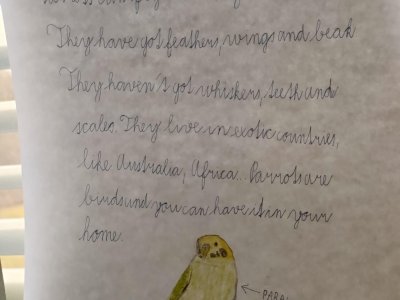 They have got feathers, wings and beak
They haven't got whiskers, teeth and
scales. They live in exotic countries,
like Australia, Africa... Parrots are
birds and you can have it in your
home.